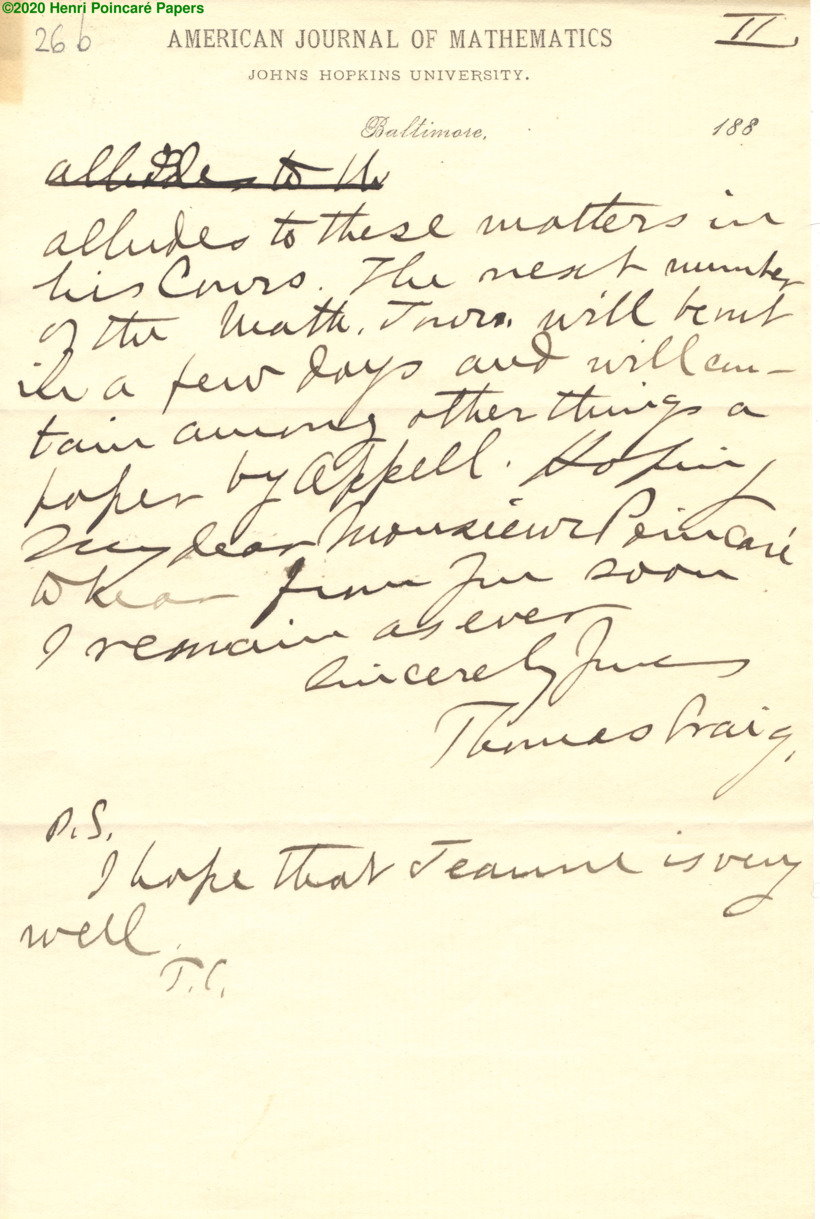 ©2020 Henri Poincaré Papers
26 b
AMERICAN JOURNAL OF MATHEMATICS
II
JOHNS HOPKINS UNIVERSITY.
Baltimore, 188
alludes to th
alludes to these matters in
his Cours. The next number
of the Math. Journ. will be out
in a few days and will con-
tain among other things a
paper by Appell. Hoping
my dear Monsieur Poincaré
to hear from you soon
I remain as ever
Sincerely Yours
Thomas Craig,
P.S.
I hope that Jeanne is very
well.
T.C.